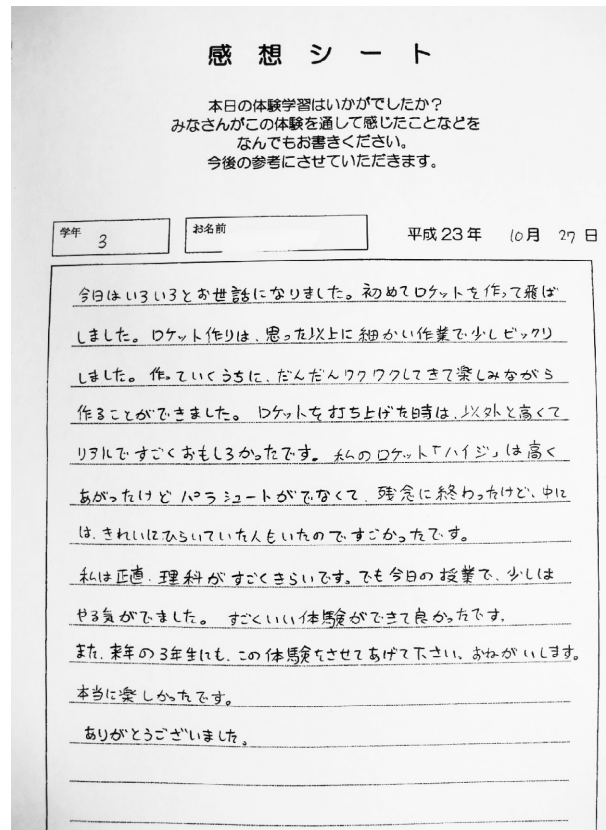 感想シート
本日の体験学習はいかがでしたか?
みなさんがこの体験を通して感じたことなどを
なんでもお書きください。
今後の参考にさせていただきます。
学年 3 お名前 平成23年 10月 27日
今日はいろいろとお世話になりました。初めてロケットを作って飛ば
しました。ロケット作りは、思った以上に細かい作業で少しビックリ
しました。作っていくうちに、だんだんワクワクしてきて楽しみながら
作ることができました。ロケットを打ち上げた時は、以外と高くて
リアルですごくおもしろかったです。私のロケット「ハイジ」は高く
あがったけどパラシュートがでなくて、残念に終わったけど、中に
は、きれいにひらいていた人もいたのですごかったです。
私は正直、理科がすごくきらいです。でも今日の授業で、少しは
やる気がでました。すごくいい体験ができて良かったです。
また、来年の3年生にも、この体験をさせてあげて下さい、おねがいします。
本当に楽しかったです。
ありがとうございました。